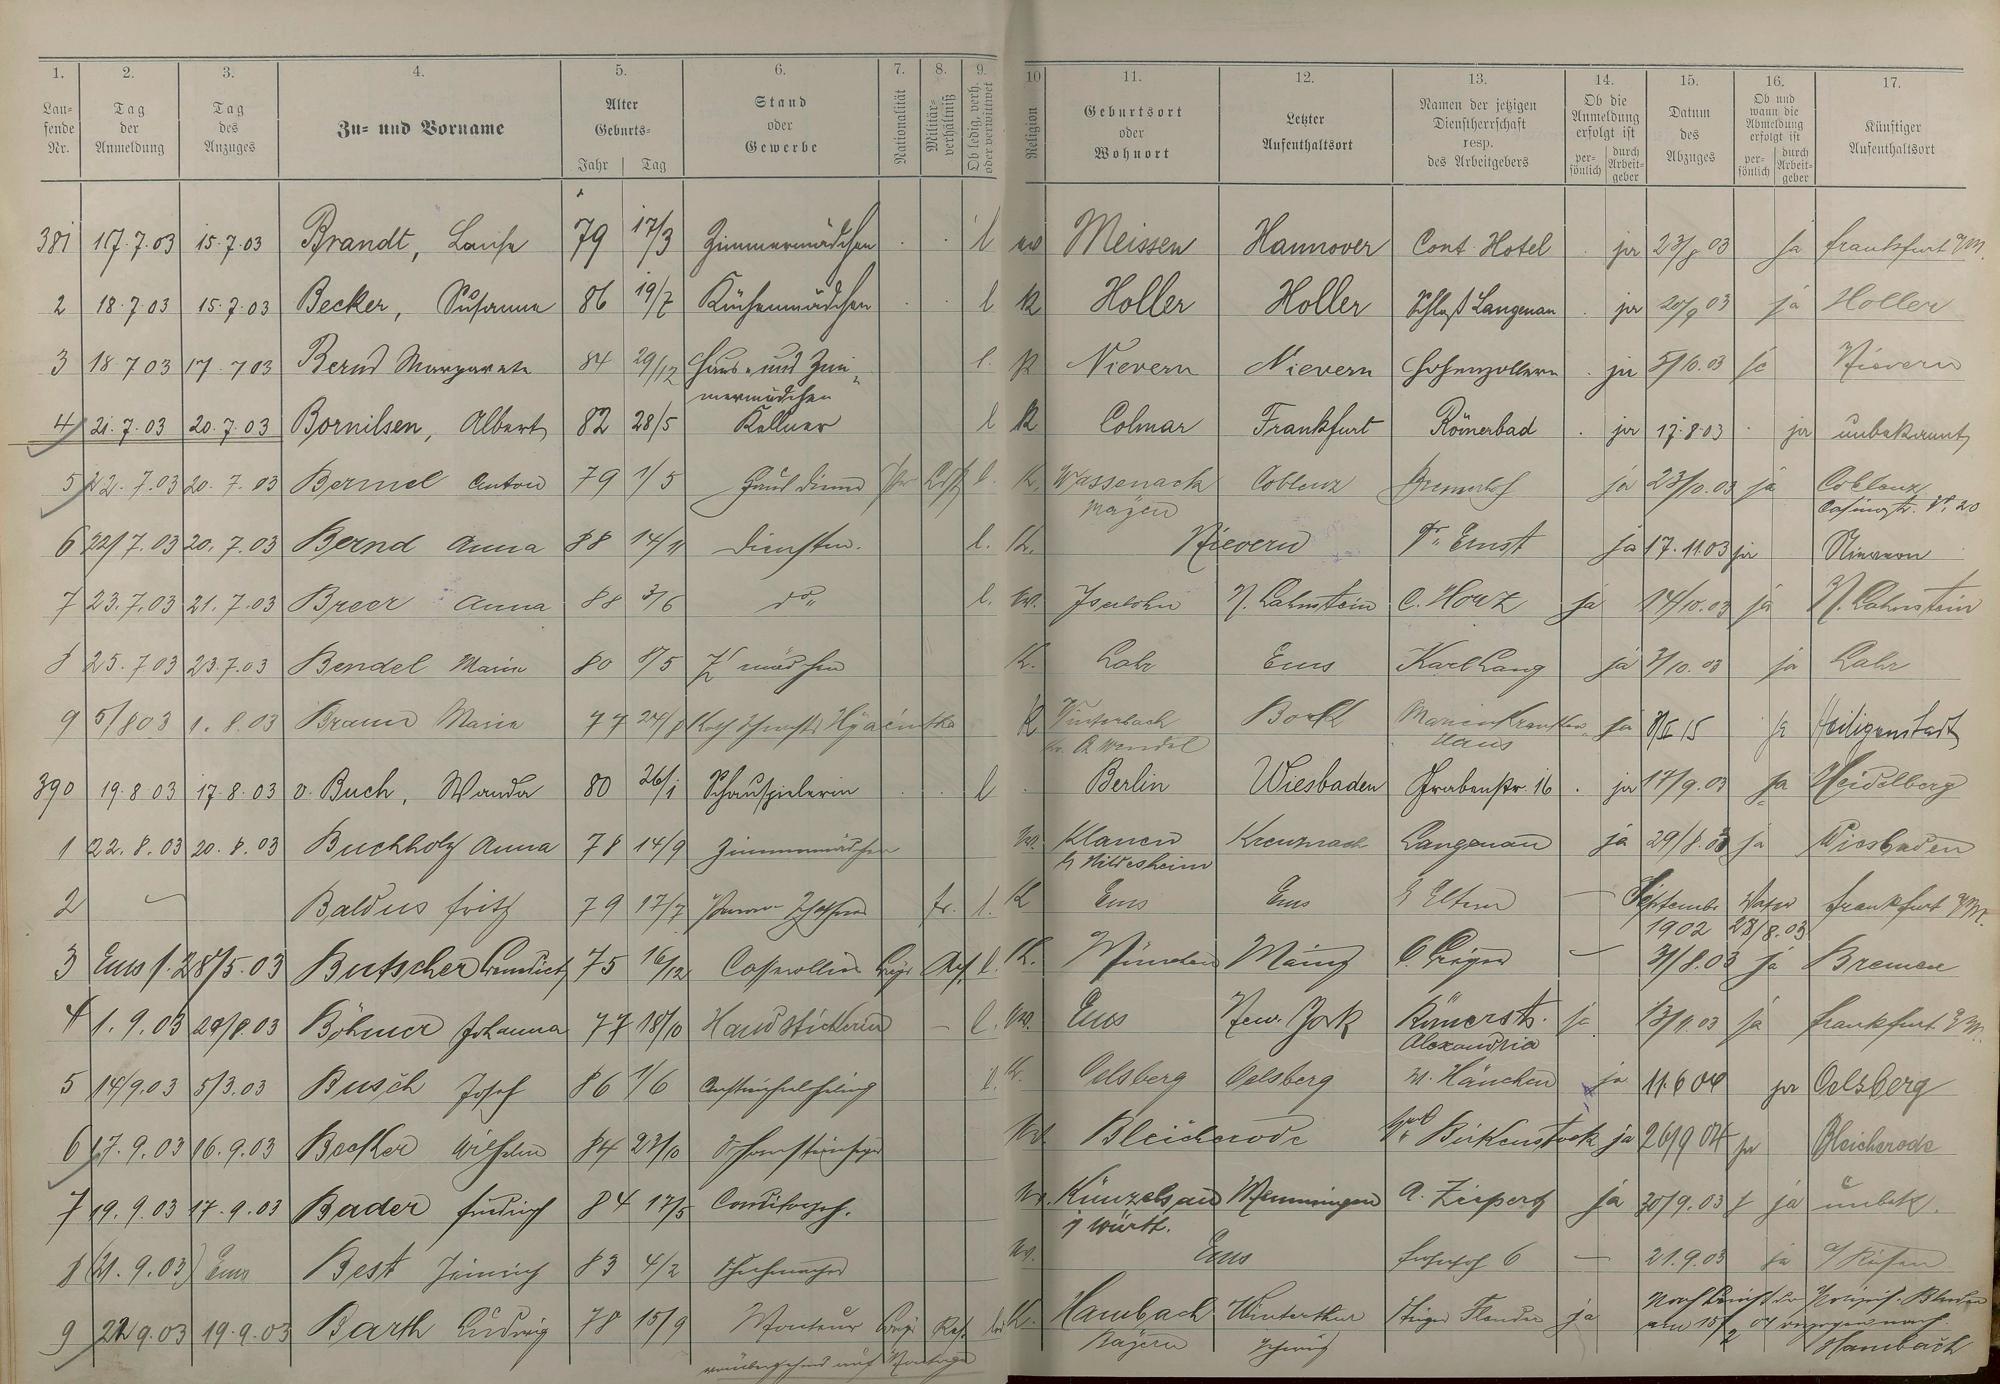 1. 2. 3. 4. 5. 6. 7. 8. 9. 10 11. 12. 13. 14. 15. 16. 17.
Lau-
fende
Nr.
Tag
der
Anmeldung
Tag
des
Anzuges
Zu- und Vorname
Alter
Geburts-
Jahr Tag
Stand
oder
Gewerbe
Nationalität
Militär-
verhältniß
Ob ledig, verh.
oder verwittwet
Religion
Geburtsort
oder
Wohnort
Letzter
Aufenthaltsort
Namen der jetzigen
Dienstherrschaft
resp.
des Arbeitgebers
Ob die
Anmeldung
erfolgt ist
per-
sönlich
durch
Arbeit-
geber
Datum
des
Abzuges
Ob und
wann die
Abmeldung
erfolgt ist
per-
sönlich
durch
Arbeit-
geber
Künftiger
Aufenthaltsort
381 17.7.03 15.7.03 Brandt, Louise 79 17/3 Zimmermädchen l ev Meissen Hannover Cont. Hotel ja 23/8 03 ja Frankfurt a/M.
2 18.7 03 15.7.03 Becker, Susanna 86 19/7 Küchenmädchen l K Holler Holler Schloß Langenau ja 20/9 03 ja Holler
3 18.7 03 17.7 03 Bernd Margarete 84 29/12 Haus- und Zim- l. K Nievern Nievern Hohenzollern ja 5/10.03 ja Nievern
mermädchen
4 21.7.03 20.7.03 Bornilsen, Albert 82 28/5 Kellner l K Colmar Frankfurt Römerbad ja 17.8.03 ja unbekannt
5 22.7.03 20.7.03 Bermel Anton 79 1/5 Hausdiener l. K. Wassenach Coblenz ja 23/10.03 ja Coblenz
Mayen Casinostr. N. 20
6 22/7.03 20.7.03 Bernd Anna 88 14/11 Dienstm. l. K. Nievern Dr. Ernst ja 17.11.03 ja Nievern
7 23.7.03 21.7.03 Breer Anna 88 3/6 do l. ev. Iserlohn N. Lahnstein C. ja 14/10.03 ja N. Lahnstein
8 25.7.03 23.7.03 Bendel Maria 80 8/5 Z mädchen K. Lahr Ems Karl Lang ja 3/10.03 ja Lahr
9 5/8 03 1.8.03 Braun Maria 77 24/8 Hyacintha K Winterbach Marienkranken- ja 15 ja Heiligenstadt
St. Wendel Haus
390 19.8.03 17.8.03 v. Buch, Wanda 80 26/1 Schauspielerin l Berlin Wiesbaden Grabenstr. 16 ja 17/9.03 ja Heidelberg
1 22.8.03 20.8.03 Buchholz Anna 78 14/9 Zimmermädchen ev. Klauen Kreuznach Langenau ja 29/8.03 ja Wiesbaden
b/ Hildesheim
2 — Baldus Fritz 79 17/7 fr. l. K Ems Ems Eltern — September Vater Frankfurt a/M.
1902 28/8.03
3 Ems 28/5.03 Butscher Benedict 75 16/12 l. K. München Mainz — 3/8.03 ja Bremen
4 1.9.03 29/8.03 Böhmer Johanna 77 18/10 Handstickerin — l. ev. Ems New-York Römerstr. ja 13/9.03 ja Frankfurt a/M.
Alexandria
5 14/9.03 5/3.03 Busch Josef 86 1/6 Anstreicherlehrling l. K. Oelsberg Oelsberg W. Hänchen ja 11.6 04 ja Oelsberg
6 17.9.03 16.9.03 Becker Wilhelm 84 23/10 Schornsteinfeger ev. Bleicherode Birkenstock ja 26/9 04 ja Bleicherode
7 19.9.03 17.9.03 Bader Friedrich 84 17/5 Conditorgeh. ev. Künzelsau Memmingen A. Ziepert ja 30/9.03 ja unbek.
i/ Württ.
8 (21.9.03) Ems Best Heinrich 83 4/2 Schuhmacher ev. Ems 6 — 21.9.03 ja a/ Reisen
9 22 9.03 19.9.03 Barth Ludwig 78 15/9 Monteur K. Hambach Winterthur ja
Bayern Schweiz Hambach
vorübergehend auf Montage